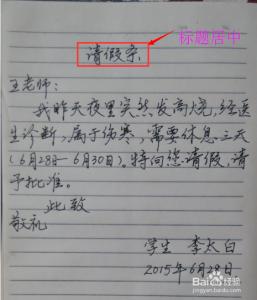 标题居中
请假条
王老师：
我昨天夜里突然发高烧，经医
生诊断，属于伤寒，需要休息三天
(6月28日-6月30日)。特向您请假，请
予批准。
此致
敬礼
学生 李太白
2015年6月28日
Baidu经验